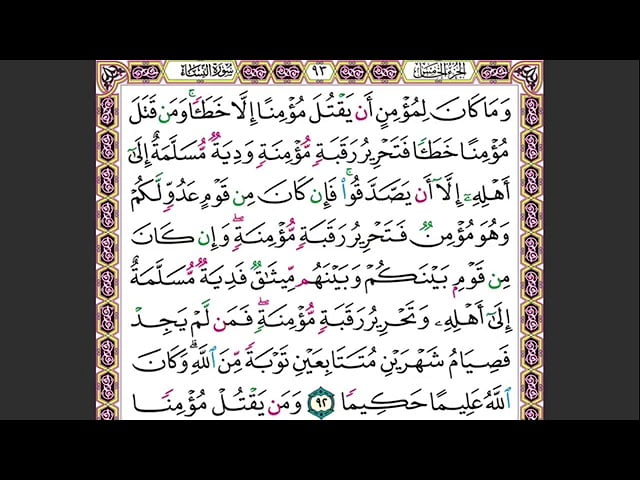 سورة النساء ٩٣ الجزء الخامس
وَمَا كَانَ لِمُؤْمِنٍ أَن يَقْتُلَ مُؤْمِنًا إِلَّا خَطَـًٔا ۚ وَمَن قَتَلَ
مُؤْمِنًا خَطَـًٔا فَتَحْرِيرُ رَقَبَةٍ مُّؤْمِنَةٍ وَدِيَةٌ مُّسَلَّمَةٌ إِلَىٰٓ
أَهْلِهِۦٓ إِلَّآ أَن يَصَّدَّقُوا۟ ۚ فَإِن كَانَ مِن قَوْمٍ عَدُوٍّ لَّكُمْ
وَهُوَ مُؤْمِنٌ فَتَحْرِيرُ رَقَبَةٍ مُّؤْمِنَةٍ ۖ وَإِن كَانَ
مِن قَوْمٍۭ بَيْنَكُمْ وَبَيْنَهُم مِّيثَـٰقٌ فَدِيَةٌ مُّسَلَّمَةٌ
إِلَىٰٓ أَهْلِهِۦ وَتَحْرِيرُ رَقَبَةٍ مُّؤْمِنَةٍ ۖ فَمَن لَّمْ يَجِدْ
فَصِيَامُ شَهْرَيْنِ مُتَتَابِعَيْنِ تَوْبَةً مِّنَ ٱللَّهِ ۗ وَكَانَ
ٱللَّهُ عَلِيمًا حَكِيمًا ٩٢ وَمَن يَقْتُلْ مُؤْمِنًا